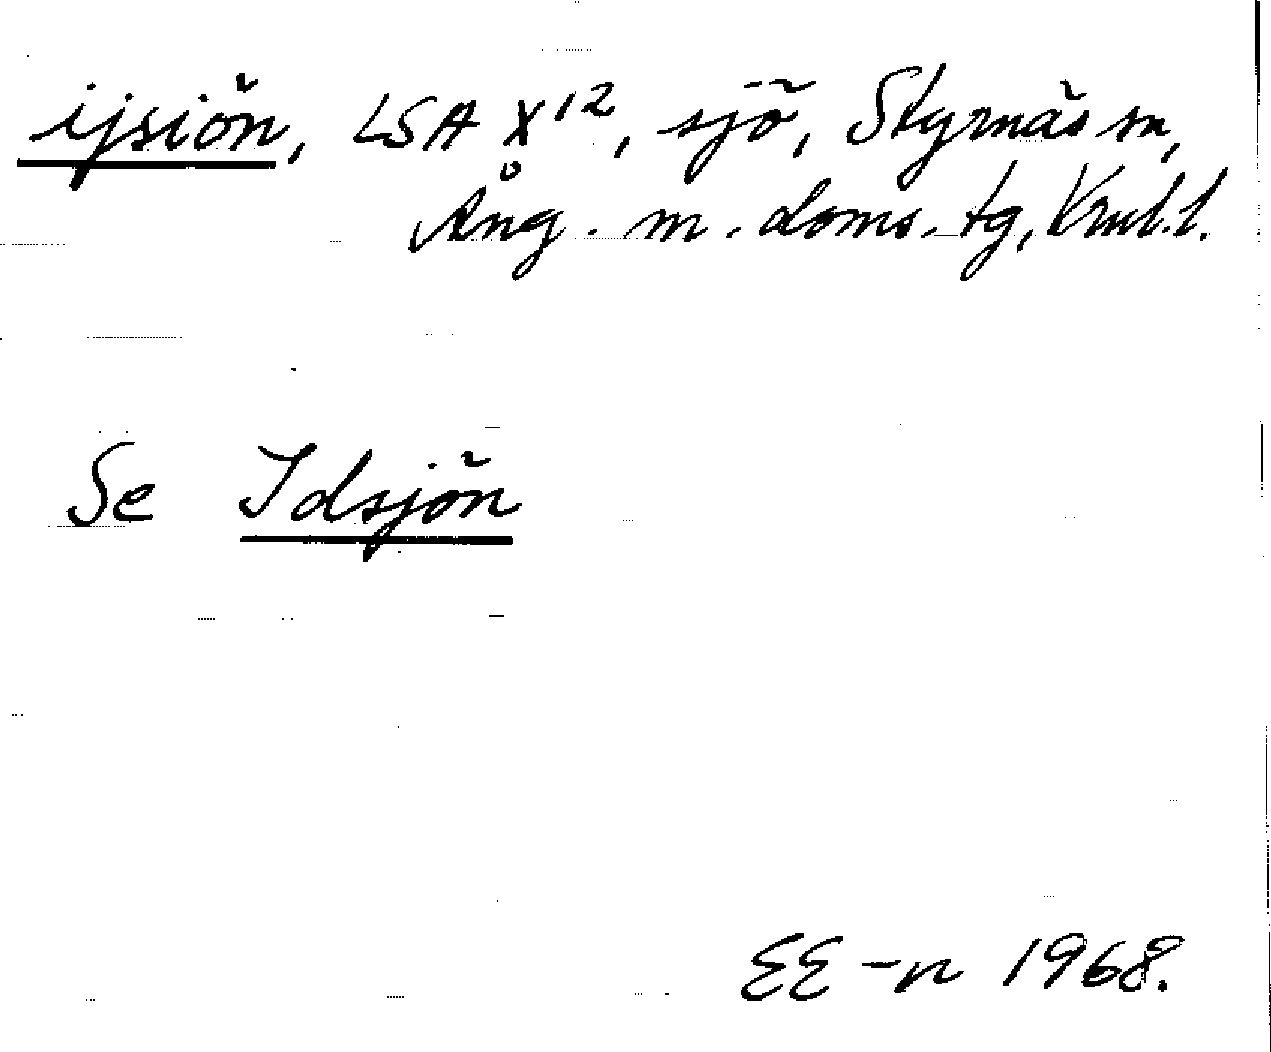 ijsiön, LSA X12, sjö, Styrnäs sn,
Ång. m. doms.tg, Vnl.l.
Se Idsjön
EE-n 1968.